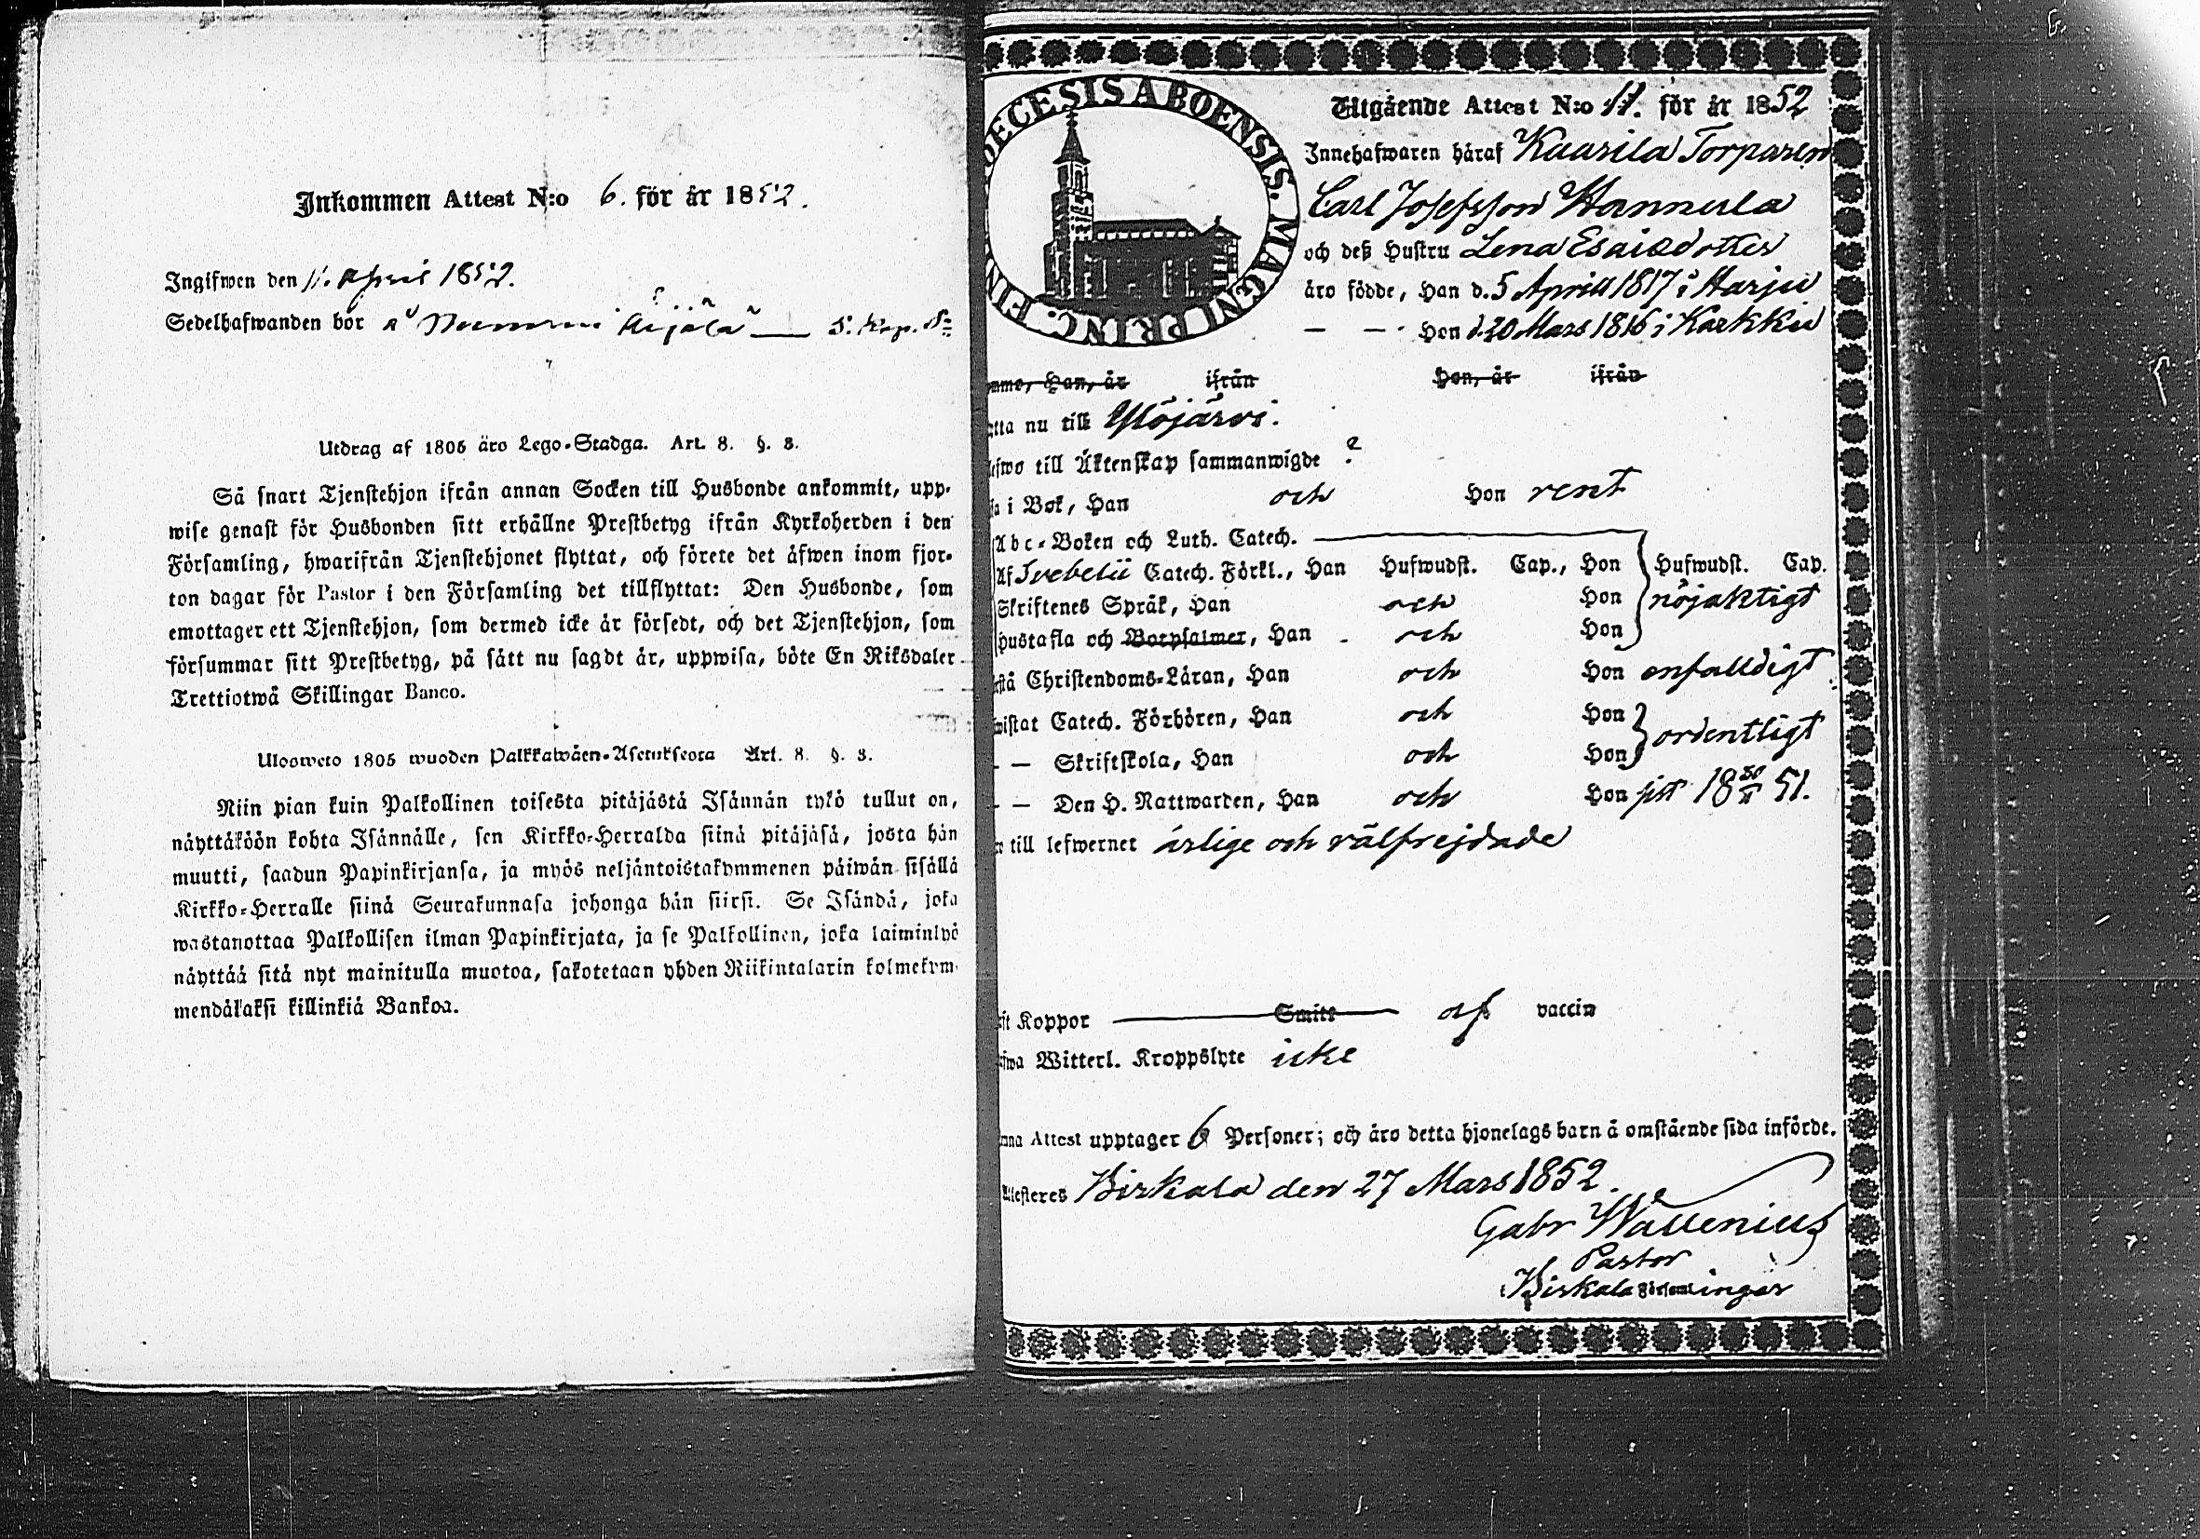 Inkommen Attest N:o 6. för år 1852.
Ingifwen den 11. April 1852.
Sedelhafwanden bor å
Utdrag af 1805 års Lego-Stadga. Art. 8. §. 3.
Så snart Tjenstehjon ifrån annan Socken till Husbonde ankommit, upp-
wise genast för Husbonden sitt erhållne Prestbetyg ifrån Kyrkoherden i den
Församling, hwarifrån Tjenstehjonet flyttat, och förete det äfwen inom fjor-
ton dagar för Pastor i den Församling det tillflyttat: Den Husbonde, som
emottager ett Tjenstehjon, som dermed icke är försedt, och det Tjenstehjon, som
försummar sitt Prestbetyg, på sätt nu sagdt är, uppwisa, böte En Riksdaler
Trettiotwå Skillingar Banco.
Ulosweto 1805 wuoden Palkkawäen-Asetuksesta Art. 8. §. 3.
Niin pian kuin Palkollinen toisesta pitäjästä Isännän tykö tullut on,
näyttäköön kohta Isännälle, sen Kirkko-Herralda siinä pitäjäsä, josta hän
muutti, saadun Papinkirjansa, ja myös neljäntoistakymmenen päiwän sisällä
Kirkko-Herralle siinä Seurakunnasa johonga hän siirsi. Se Isändä, joka
wastanottaa Palkollisen ilman Papinkirjata, ja se Palkollinen, joka laiminlyö
näyttää sitä nyt mainitulla muotoa, sakotetaan yhden Riikintalarin kolmekym-
mendäkaksi killinkiä Bankoa.
DIOECESIS ABOENSIS. MAGNI PRINC. FIN
Utgående Attest N:o 11. för år 1852
Innehafwaren häraf Kuurila Torparen
Carl Josefsson Hannula
och deß Hustru Lena Esaiedotter
äro födde, Han d. 5 Aprill 1817 i Harju
— — Hon d. 20 Mars 1816 i Karkku
Han, är ifrån Hon, är ifrån
nu till Ylöjärvi.
till Äktenskap sammanwigde ?
i Bok, Han och Hon rent
Abc-Boken och Luth. Catech.
Af Svebelii Catech. Förkl., Han Hufwudst. Cap., Hon Hufwudst. Cap.
Skriftenes Språk, Han och Hon nöjaktigt
Hustafla och Botpsalmer, Han och Hon
Christendoms-Läran, Han och Hon enfalldigt
Catech. Förhören, Han och Hon
— — Skriftskola, Han och Hon ordentligt
— — Den H. Nattwarden, Han och Hon sist 18 30/11 51.
till lefwernet ärlige och välfrejdade
Koppor Smitt af vaccin
Witterl. Kroppslyte icke
Attest upptager 6 Personer; och äro detta hjonelags barn å omstående sida införde.
Attesteres Birkala den 27 Mars 1852.
Gabr Wallenius
Pastor
Birkala Församlingar